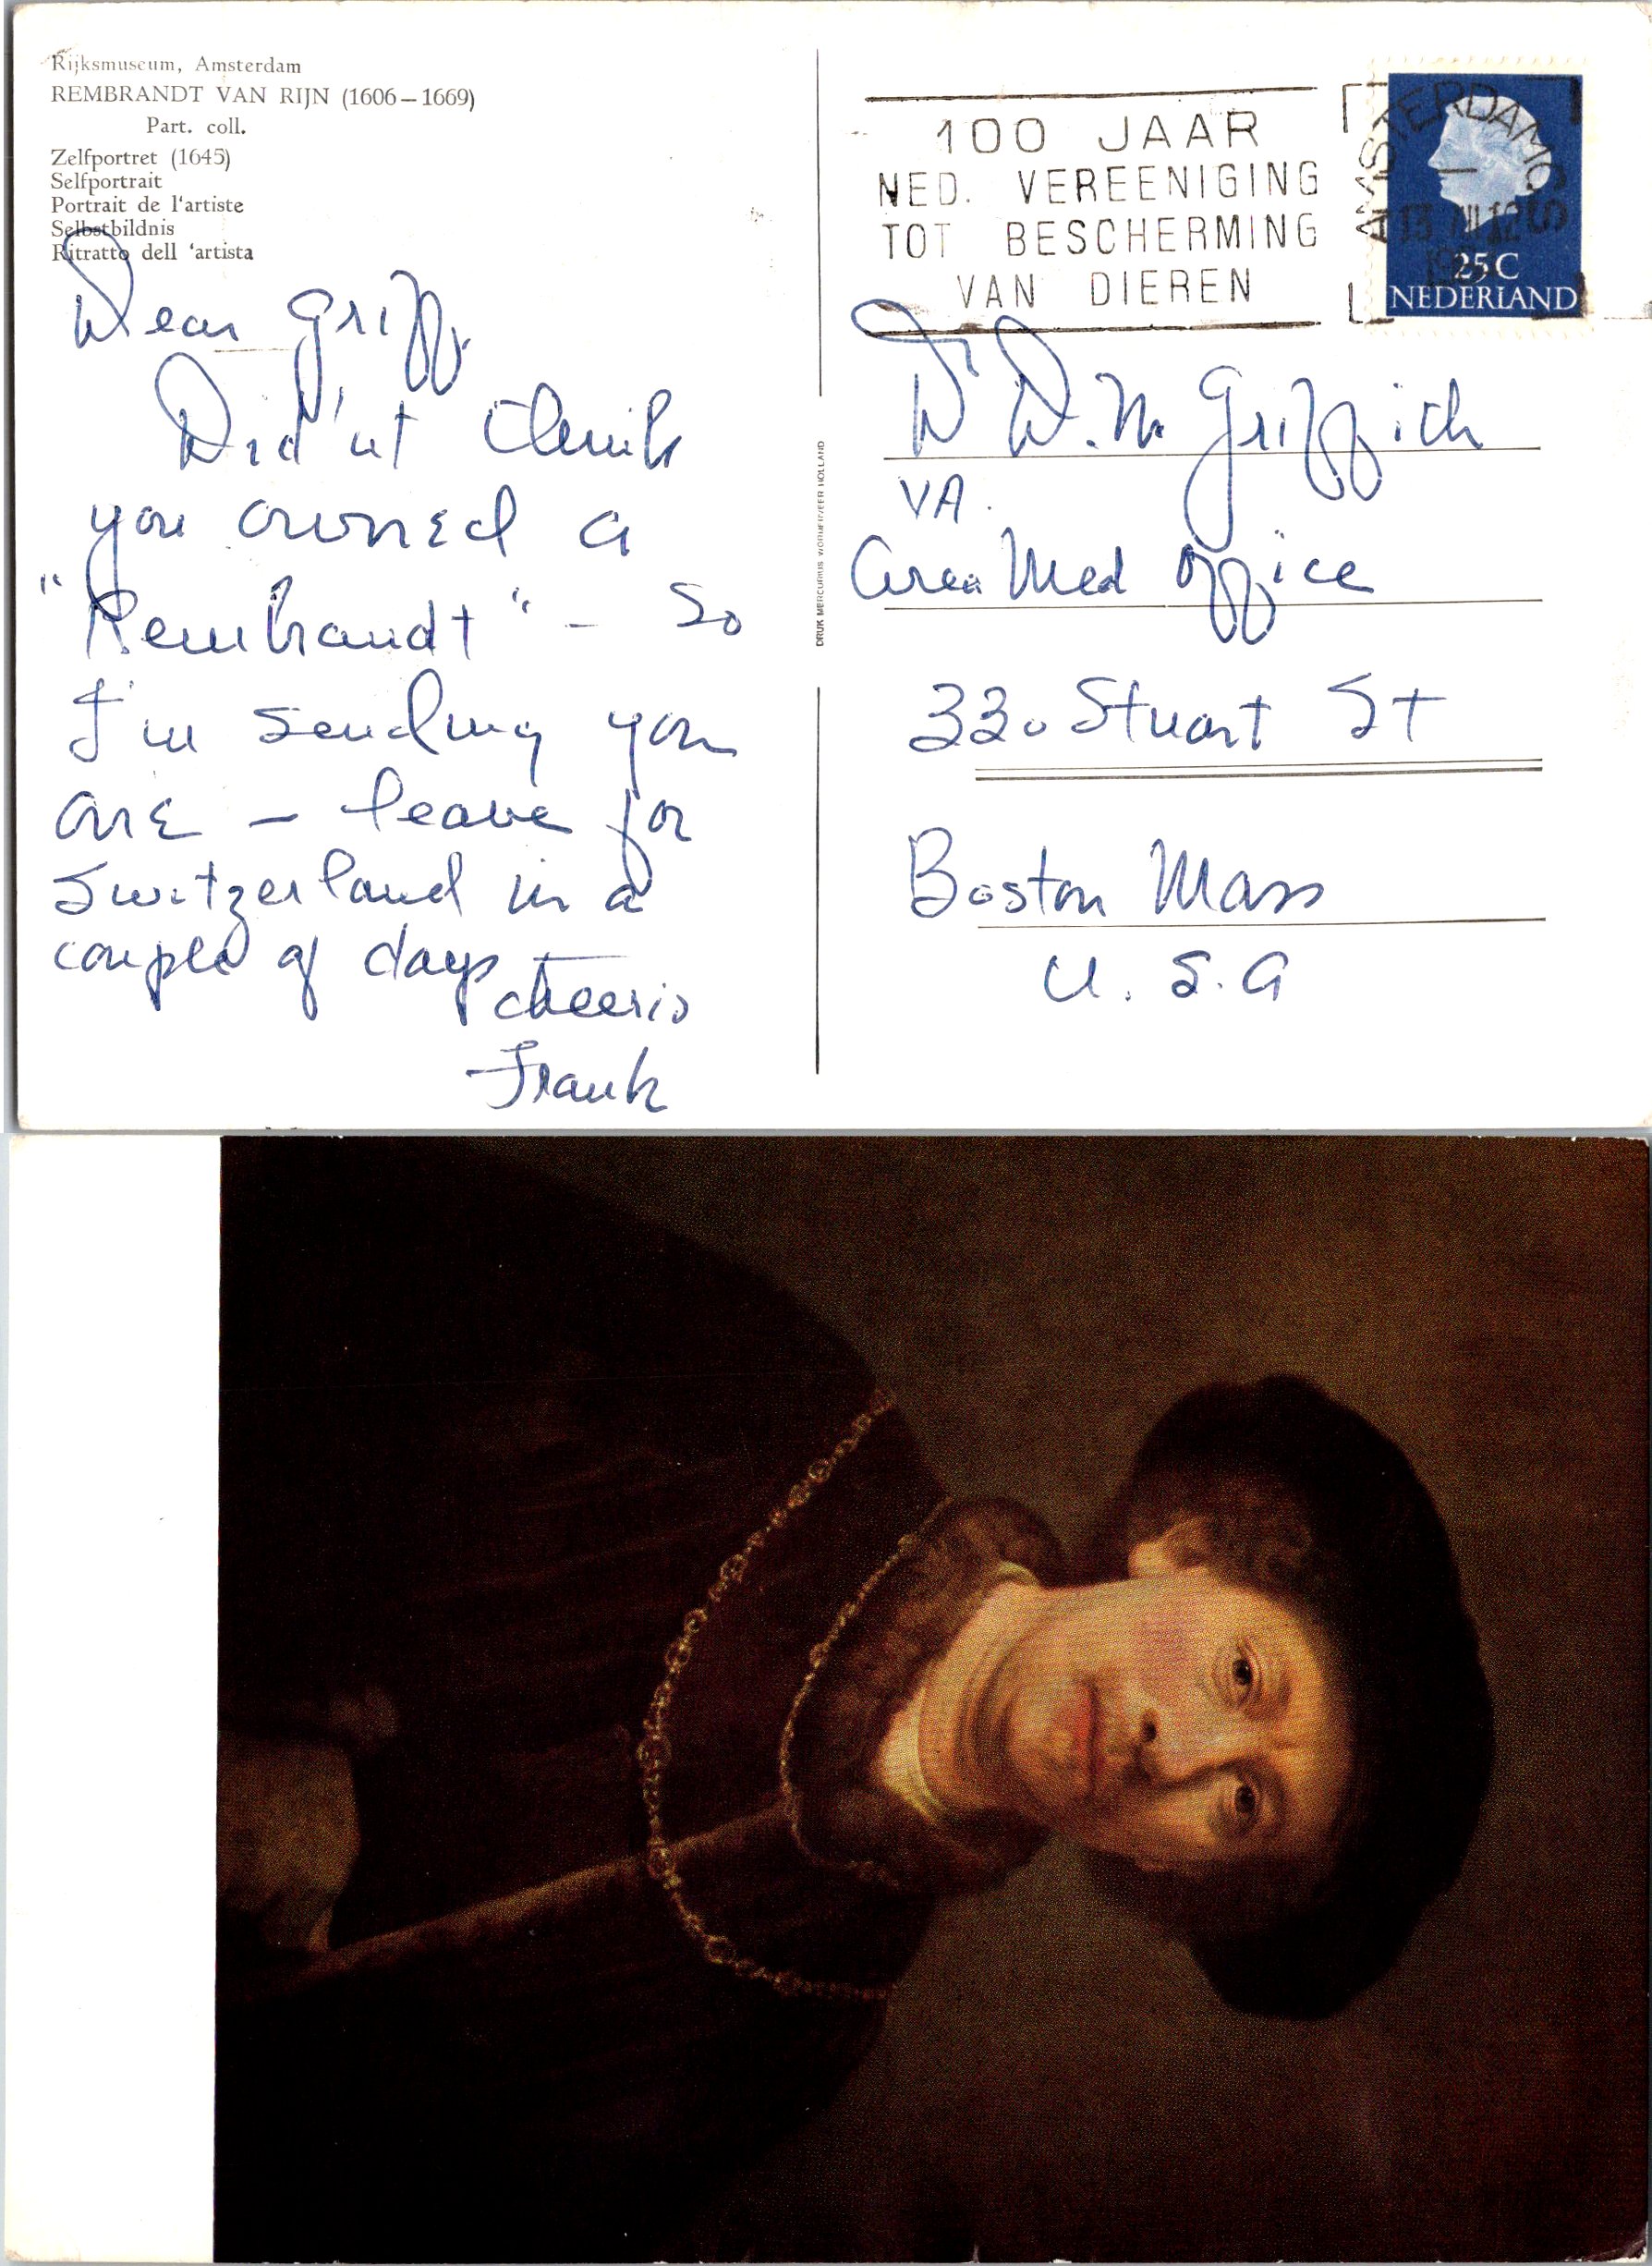 Rijksmuseum, Amsterdam
REMBRANDT VAN RIJN (1606–1669)
Part. coll.
Zelfportret (1645)
Selfportrait
Portrait de l'artiste
Selbstbildnis
Ritratto dell 'artista
Dear Griff,
Did'nt think
you owned a
"Rembrandt" – So
I'm sending you
one – leave for
Switzerland in a
couple of days –
cheerio
Frank
DRUK MERCURIUS WORMERVEER HOLLAND
100 JAAR
NED. VEREENIGING
TOT BESCHERMING
VAN DIEREN
AMSTERDAM CS
25C
NEDERLAND
Dr D. M. Griffith
VA.
Area Med Office
330 Stuart St
Boston Mass
U. S. A